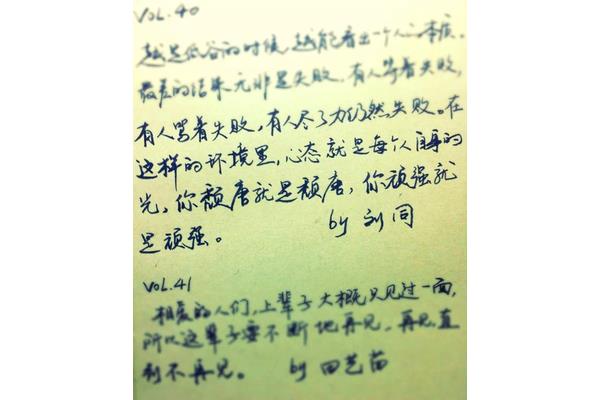 VOL.40
越是低谷的时候,越能看出一个人的本质。
最差的结果无非是失败,有人等着失败,
有人笑着失败,有人尽了力仍然失败。在
这样的环境里,心态就是每个人自身的
光,你颓唐就是颓唐,你顽强就
是顽强。 by 刘同
VOL.41
相爱的人们,上辈子大概只见过一面,
所以这辈子要不断地再见,再见,直
到不再见。 by 田艺苗